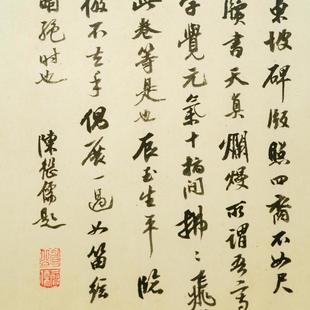 東坡碑版照四裔不如尺
牘書天真爛熳所謂吾寫
字覺元氣十指間拂拂飛
此卷等是也辰玉生平臨
倣不去手偶展一過如笛
絕时也
陳繼儒題